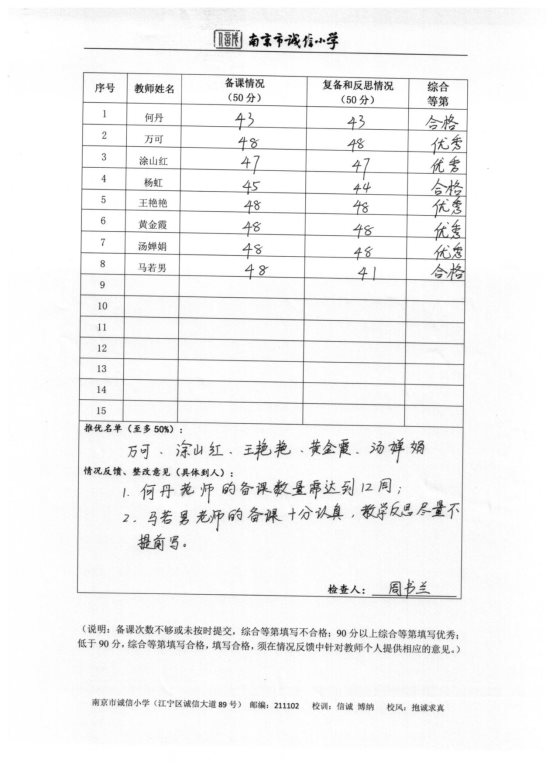 南京市诚信小学
序号 教师姓名 备课情况（50分） 复备和反思情况（50分） 综合等第
1 何丹 43 43 合格
2 万可 48 48 优秀
3 涂山红 47 47 优秀
4 杨虹 45 44 合格
5 王艳艳 48 48 优秀
6 黄金霞 48 48 优秀
7 汤婵娟 48 48 优秀
8 马若男 48 41 合格
9
10
11
12
13
14
15
推优名单（至多50%）：
万可、涂山红、王艳艳、黄金霞、汤婵娟
情况反馈、整改意见（具体到人）：
1. 何丹老师的备课数量需达到12周；
2. 马若男老师的备课十分认真，教学反思尽量不
提前写。
检查人：周书兰
（说明：备课次数不够或未按时提交，综合等第填写不合格；90分以上综合等第填写优秀；
低于90分，综合等第填写合格，填写合格，须在情况反馈中针对教师个人提供相应的意见。）
南京市诚信小学（江宁区诚信大道89号） 邮编：211102 校训：信诚 博纳 校风：抱诚求真